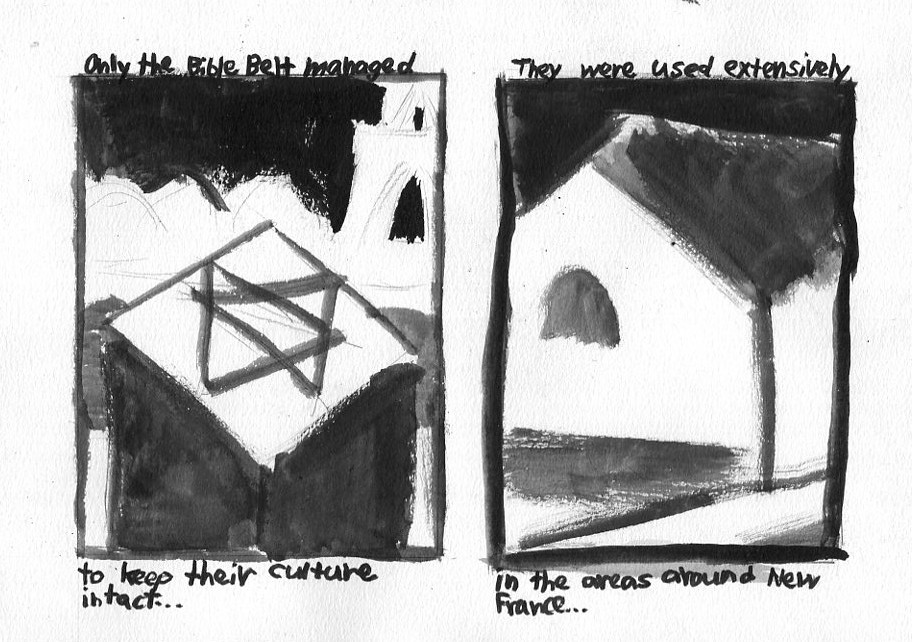 Only the Bible Belt managed
to keep their culture
intact...
They were used extensively
in the areas around New
France...